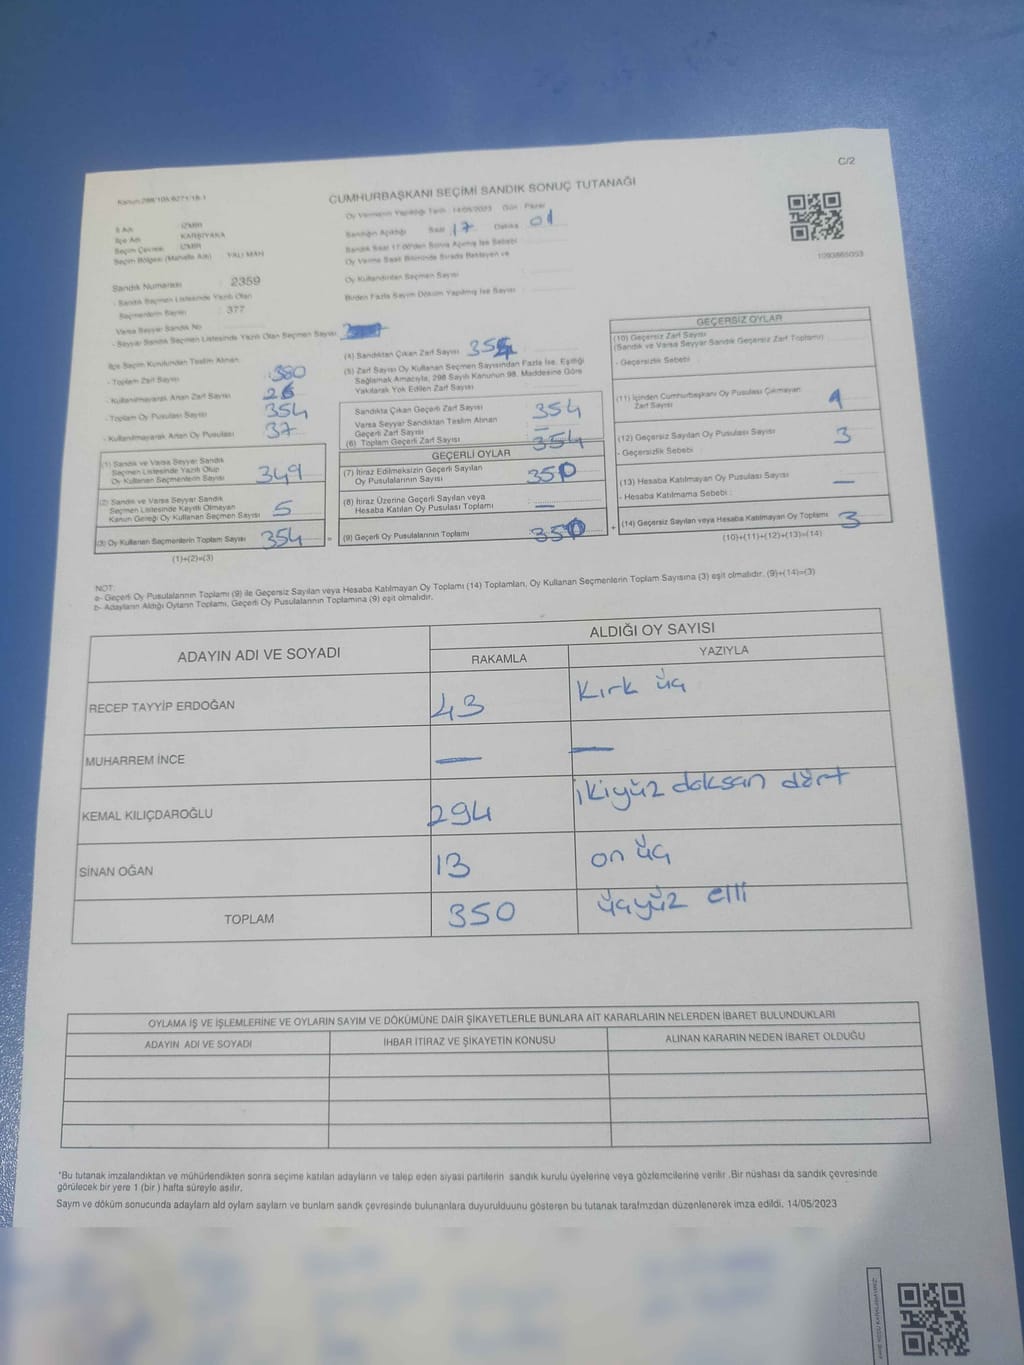 C/2
Kanun:298/105-6271/18-1
CUMHURBAŞKANI SEÇİMİ SANDIK SONUÇ TUTANAĞI
İl Adı İZMİR
İlçe Adı KARŞIYAKA
Seçim Çevresi İZMİR
Seçim Bölgesi (Mahalle Adı) YALI MAH
Sandık Numarası 2359
- Sandık Seçmen Listesinde Yazılı Olan
Seçmenlerin Sayısı : 377
Varsa Seyyar Sandık No
- Seyyar Sandık Seçmen Listesinde Yazılı Olan Seçmen Sayısı
Oy Vermenin Yapıldığı Tarih 14/05/2023 Gün : Pazar
Sandığın Açıldığı Saat 17 Dakika 01
Sandık Saat 17.00'den Sonra Açılmış İse Sebebi
Oy Verme Saati Bitiminde Sırada Bekleyen ve
Oy Kullandırılan Seçmen Sayısı
Birden Fazla Sayım Döküm Yapılmış İse Sayısı
1093865053
İlçe Seçim Kurulundan Teslim Alınan
- Toplam Zarf Sayısı 380
- Kullanılmayarak Artan Zarf Sayısı 26
- Toplam Oy Pusulası Sayısı 354
- Kullanılmayarak Artan Oy Pusulası 37
(1) Sandık ve Varsa Seyyar Sandık
Seçmen Listesinde Yazılı Olup
Oy Kullanan Seçmenlerin Sayısı 349
(2) Sandık ve Varsa Seyyar Sandık
Seçmen Listesinde Kayıtlı Olmayan
Kanun Gereği Oy Kullanan Seçmen Sayısı 5
(3) Oy Kullanan Seçmenlerin Toplam Sayısı 354
(1)+(2)=(3)
(4) Sandıktan Çıkan Zarf Sayısı 354
(5) Zarf Sayısı Oy Kullanan Seçmen Sayısından Fazla İse, Eşitliği
Sağlamak Amacıyla, 298 Sayılı Kanunun 98. Maddesine Göre
Yakılarak Yok Edilen Zarf Sayısı
Sandıkta Çıkan Geçerli Zarf Sayısı 354
Varsa Seyyar Sandıktan Teslim Alınan
Geçerli Zarf Sayısı : —
(6) Toplam Geçerli Zarf Sayısı 354
GEÇERLİ OYLAR
(7) İtiraz Edilmeksizin Geçerli Sayılan
Oy Pusulalarının Sayısı 350
(8) İtiraz Üzerine Geçerli Sayılan veya
Hesaba Katılan Oy Pusulası Toplamı —
(9) Geçerli Oy Pusulalarının Toplamı 350
GEÇERSİZ OYLAR
(10) Geçersiz Zarf Sayısı
(Sandık ve Varsa Seyyar Sandık Geçersiz Zarf Toplamı)
- Geçersizlik Sebebi
(11) İçinden Cumhurbaşkanı Oy Pusulası Çıkmayan
Zarf Sayısı 1
(12) Geçersiz Sayılan Oy Pusulası Sayısı 3
- Geçersizlik Sebebi
(13) Hesaba Katılmayan Oy Pusulası Sayısı —
- Hesaba Katılmama Sebebi :
(14) Geçersiz Sayılan veya Hesaba Katılmayan Oy Toplamı 3
(10)+(11)+(12)+(13)=(14)
NOT:
a- Geçerli Oy Pusulalarının Toplamı (9) ile Geçersiz Sayılan veya Hesaba Katılmayan Oy Toplamı (14) Toplamları, Oy Kullanan Seçmenlerin Toplam Sayısına (3) eşit olmalıdır. (9)+(14)=(3)
b- Adayların Aldığı Oyların Toplamı, Geçerli Oy Pusulalarının Toplamına (9) eşit olmalıdır.
ADAYIN ADI VE SOYADI ALDIĞI OY SAYISI
RAKAMLA YAZIYLA
RECEP TAYYİP ERDOĞAN 43 Kırk üç
MUHARREM İNCE — —
KEMAL KILIÇDAROĞLU 294 ikiyüz doksan dört
SİNAN OĞAN 13 on üç
TOPLAM 350 üçyüz elli
OYLAMA İŞ VE İŞLEMLERİNE VE OYLARIN SAYIM VE DÖKÜMÜNE DAİR ŞİKAYETLERLE BUNLARA AİT KARARLARIN NELERDEN İBARET BULUNDUKLARI
ADAYIN ADI VE SOYADI İHBAR İTİRAZ VE ŞİKAYETİN KONUSU ALINAN KARARIN NEDEN İBARET OLDUĞU
*Bu tutanak imzalandıktan ve mühürlendikten sonra seçime katılan adayların ve talep eden siyasi partilerin sandık kurulu üyelerine veya gözlemcilerine verilir .Bir nüshası da sandık çevresinde
görülecek bir yere 1 (bir ) hafta süreyle asılır.
Sayım ve döküm sonucunda adayların ald oyların sayların ve bunların sandk çevresinde bulunanlara duyurulduunu gösteren bu tutanak tarafmzdan düzenlenerek imza edildi. 14/05/2023